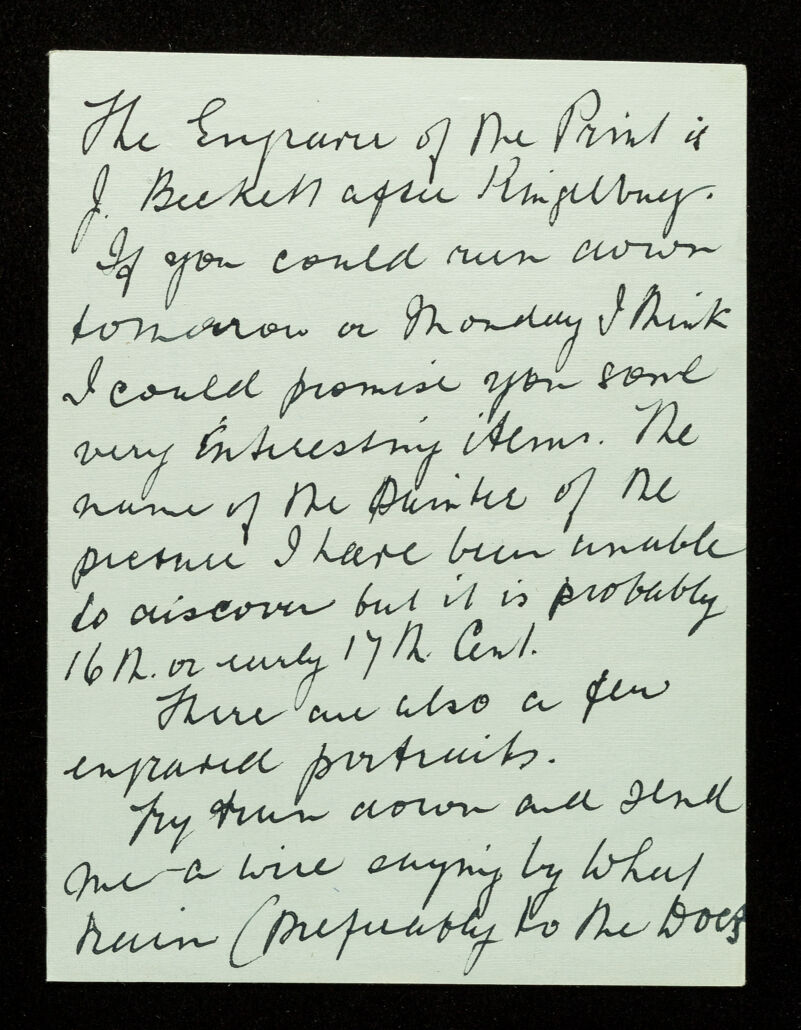 The Engraver of the Print is
J. Beckett after Kingsbury.
If you could run down
tomorrow or Monday I think
I could promise you some
very interesting items. The
name of the Painter of the
picture I have been unable
to discover but it is probably
16th. or early 17th. Cent.
There are also a few
engraved portraits.
Try & run down and send
me a wire saying by what
train (preferably to the Docks